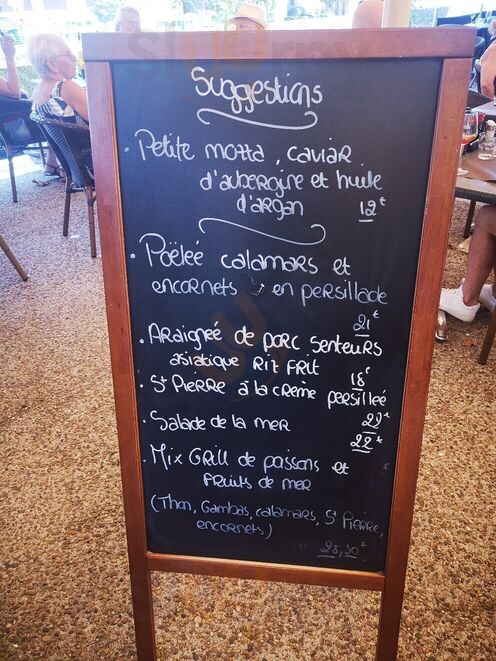 Suggestions
• Petite motta, caviar
d'aubergine et huile
d'argan 12€
• Poëleé calamars et
encornets en persillade
21€
• Araigneé de porc senteurs
asiatique Riz frit 18€
• St Pierre à la creme persilleé
29€
• Salade de la mer 22€
• Mix Grill de poissons et
fruits de mer
(Thon, Gambas, calamars, St Pierre,
encornets)
28,50€